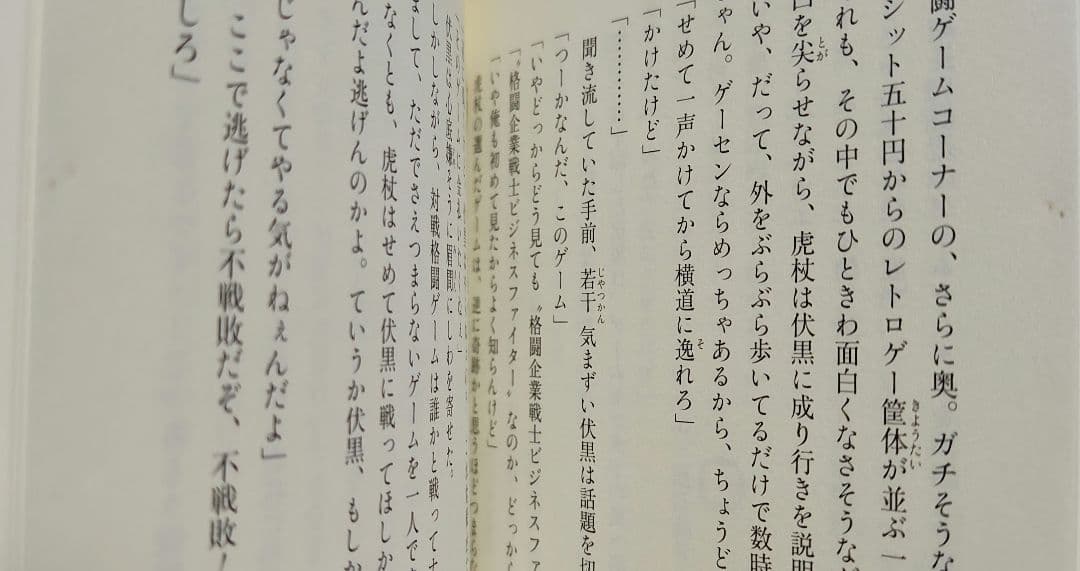 闘ゲームコーナーの、さらに奥。ガチそうな
シット五十円からのレトロゲー筐体が並ぶ一
れも、その中でもひときわ面白くなさそうな
口を尖らせながら、虎杖は伏黒に成り行きを説明
いや、だって、外をぶらぶら歩いてるだけで数時
ちゃん。ゲーセンならめっちゃあるから、ちょうど
「せめて一声かけてから横道に逸れろ」
「かけたけど」
「…………」
聞き流していた手前、若干気まずい伏黒は話題を切
「つーかなんだ、このゲーム」
「いやどっからどう見ても〝格闘企業戦士ビジネスファ
「〝格闘企業戦士ビジネスファイター〟なのか、どっから
「いや俺も初めて見たからよく知らんけど」
虎杖の選んだゲームは、逆に奇跡かと思うほどつまらな
伏黒は心底嫌そうに眉間にしわを寄せた。
しかしながら、対戦格闘ゲームは誰かと戦って
まして、ただでさえつまらないゲームを一人で
なくとも、虎杖はせめて伏黒に戦ってほしか
んだよ逃げんのかよ。ていうか伏黒、もしか
じゃなくてやる気がねぇんだよ」
ここで逃げたら不戦敗だぞ、不戦敗！
しろ」